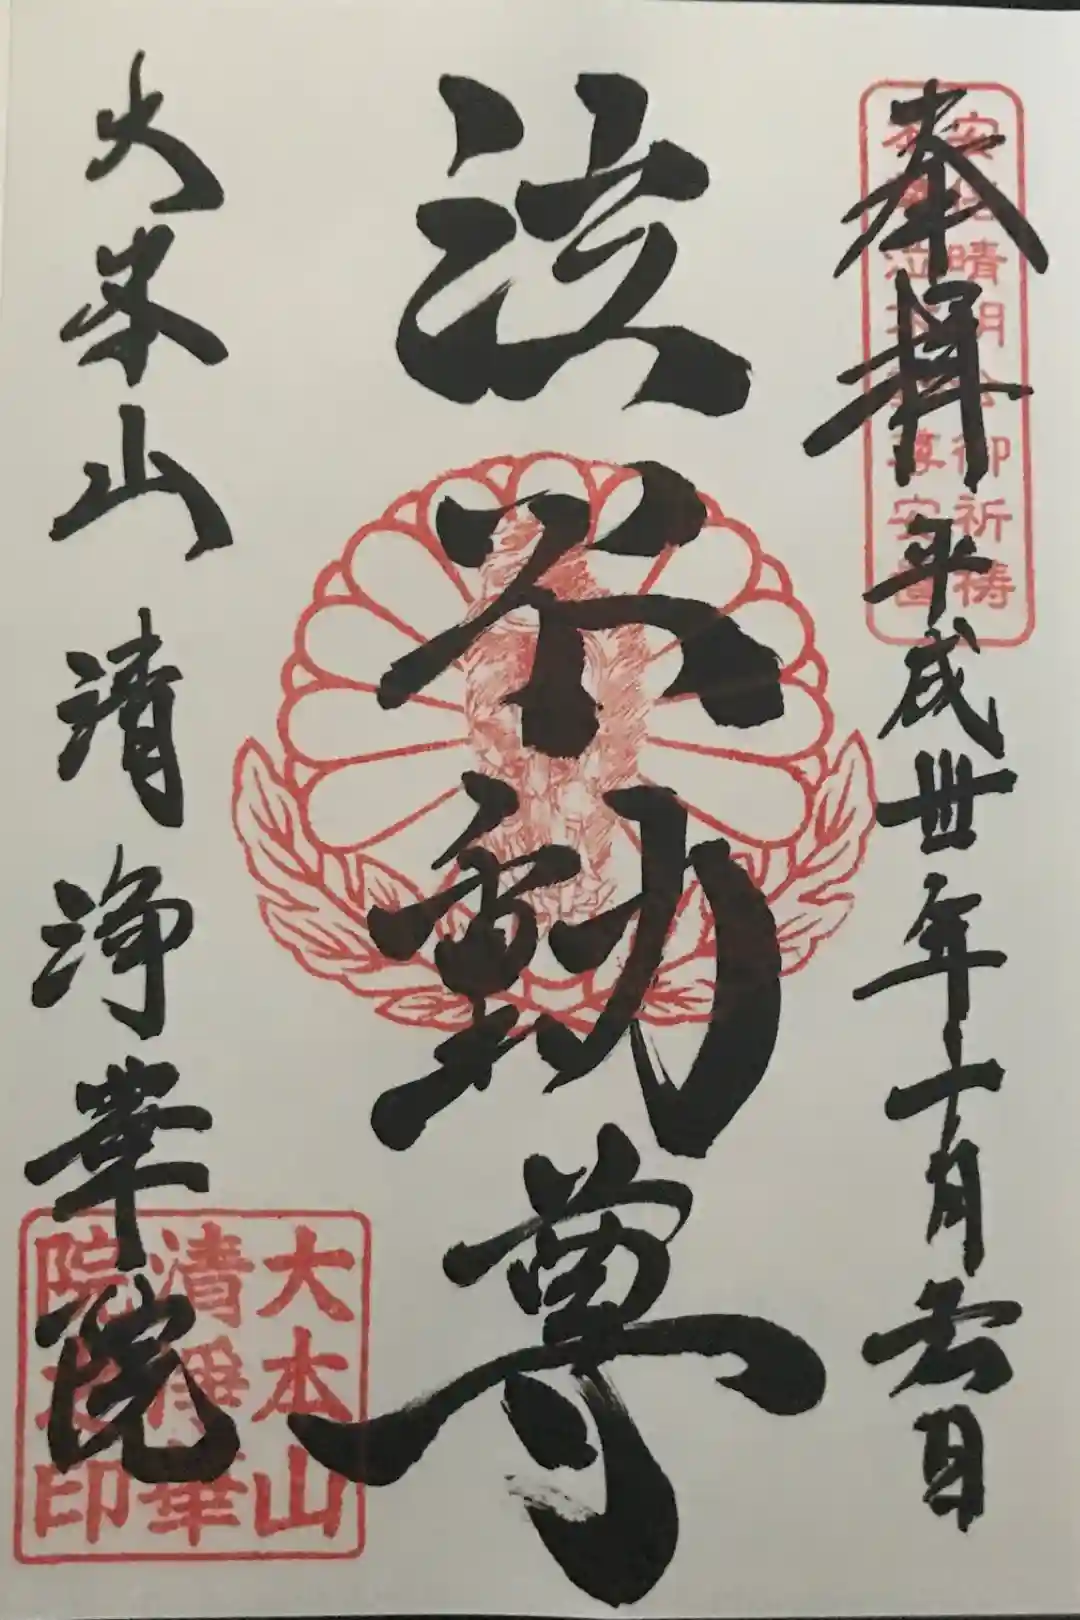 安倍晴明公御祈祷
泣不動尊安置
奉拝 平成卅年十月吉日
泣不動尊
大本山 清浄華院
大本山
清淨華
院之印